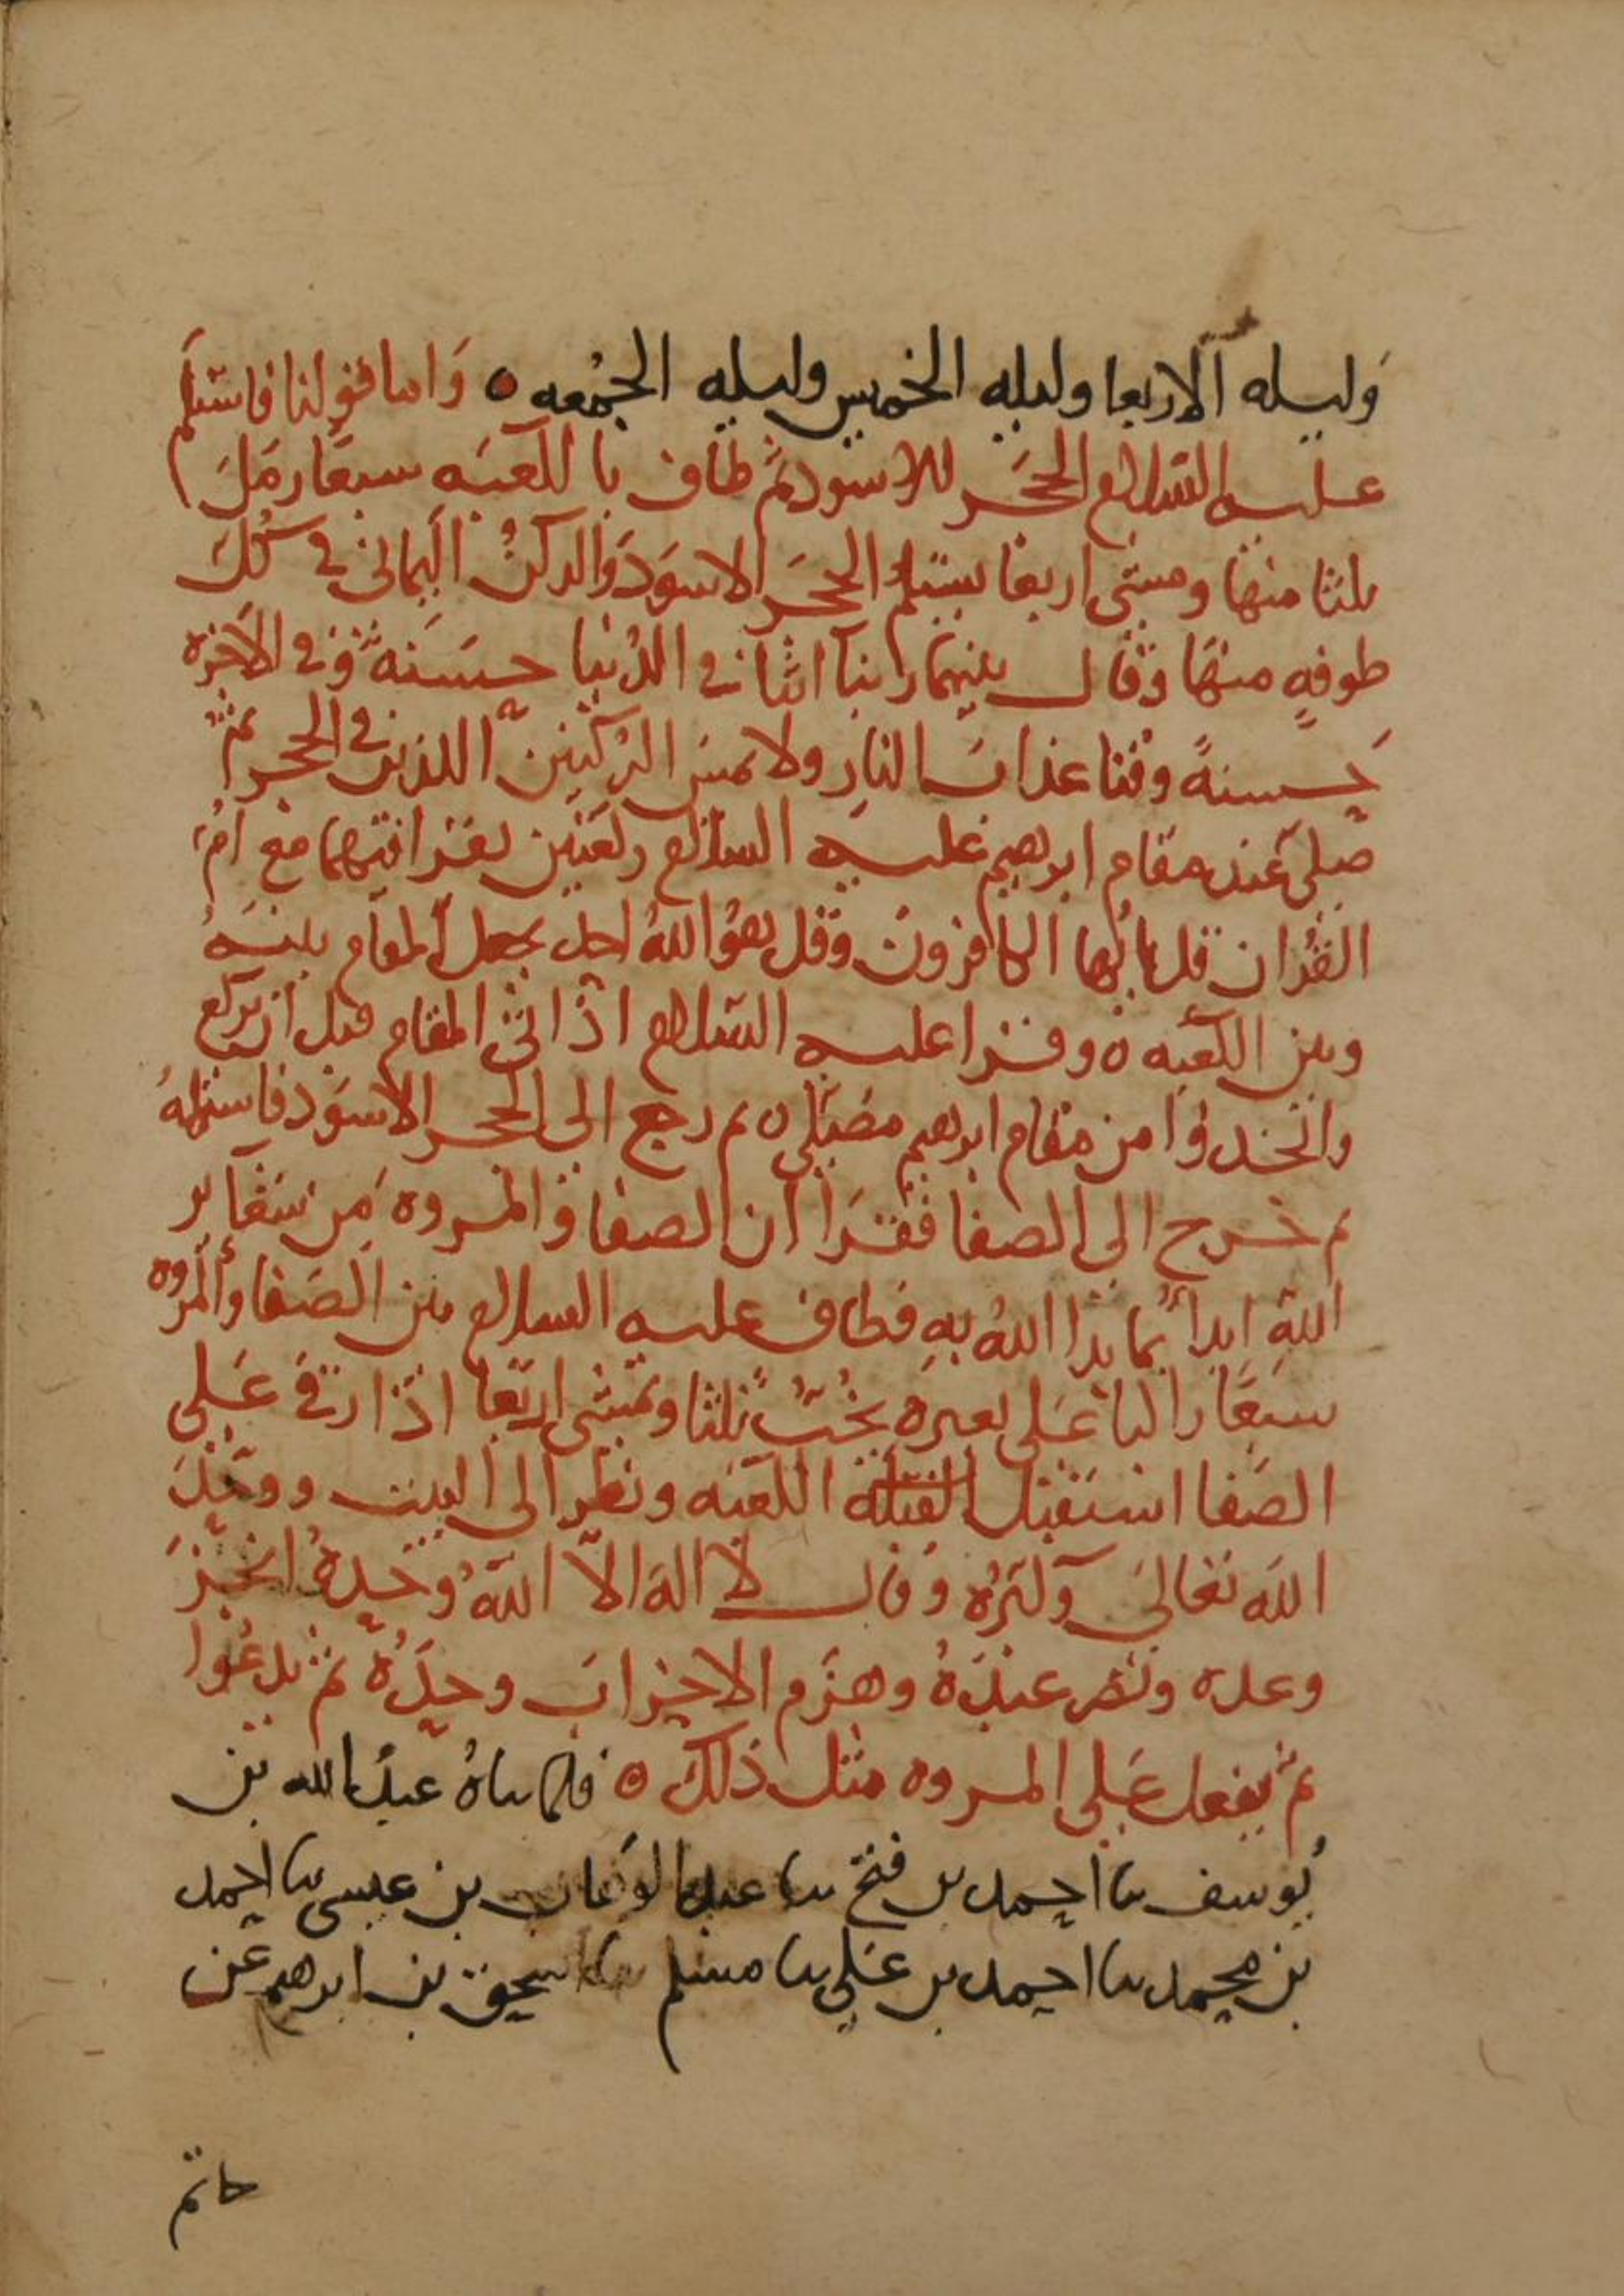 وليله الاربعا وليله الخميس وليله الجمعه ٥ وَاما قولنا فاستلم
عليه السلام الحجَر الاسود ثم طاف با الكعبَه سبعًا رمَلَ
ثلثا منها ومشى اربعا يستلم الحجَر الاسوَدَ والركنُ اليماني في كل
طوفهٍ منهَا وقال بينهما ربنا اتنا في الدُنيا حسَنهً وفي الاخرة
حَسنةً وقنا عذابَ النارِ ولا يمسَ الرُكنَين اللذين في الحجر ثم
صلى عند مقام ابرهيم عليه السلام ركعتين يقرا فيهما مع امُ
القُران قل يا ايُها الكافرون وقل هوُ اللهُ احد يجعل المقام بينَهُ
وبين الكعبه ٥ وقرا عليه السلام اذا اتى المقام قبل ان يركع
واتخذوا من مقام ابرهيم مصَلى ٥ ثم رجع الى الحجر الاسوَد فاستلمهُ
ثم خرج الى الصفا فقرَا ان الصفا والمروه مِن شعَاير
اللهِ ابدأُ بما بدا اللهُ بهِ فطاف عليه السلام بين الصَفا والمروه
سبعًا راكبا عَلى بعيره يخُبُ ثلثا ويمشى اربَعا اذا رقي عَلى
الصَفا استقبل القبلة الكعبَه ونظر الى البيت ووحَّدَ
اللَه تعالىَ وكبَرُه وقال لا اله الاّ اللهُ وحدهُ انجزَ
وعده ونصر عبدَهُ وهزَم الاحزابَ وحدَهُ ثم يدعُوا
ثم يفعل عَلى المروه مثل ذلك ٥ فلما ناهُ عبدُ الله بن
يُوسف نا احمد بن فتح نا عبد الوهاب بن عيسى نا احمد
بن محمد نا احمد بن عَلي نا مسلم نا اسحق بن ابرهيم عَن
حاتم